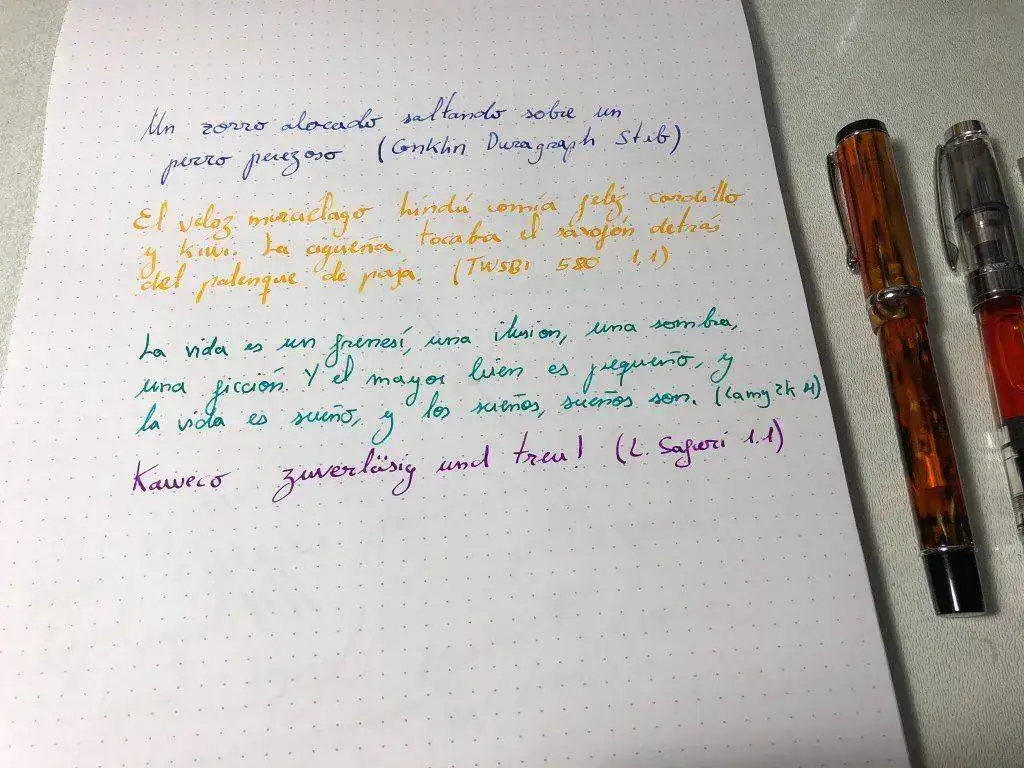 Un zorro alocado saltando sobre un
perro perezoso (Conklin Duragraph Stub)
El veloz murciélago hindú comía feliz cardillo
y kiwi. La cigueña tocaba el saxofón detrás
del palenque de paja. (TWSBI 580 1,1)
La vida es un frenesí, una ilusion, una sombra,
una ficción. Y el mayor bien es pequeño, y
la vida es sueño, y los sueños, sueños son. (Lamy 2k M)
Kaweco zuverläsig und treu! (L. Safari 1.1)